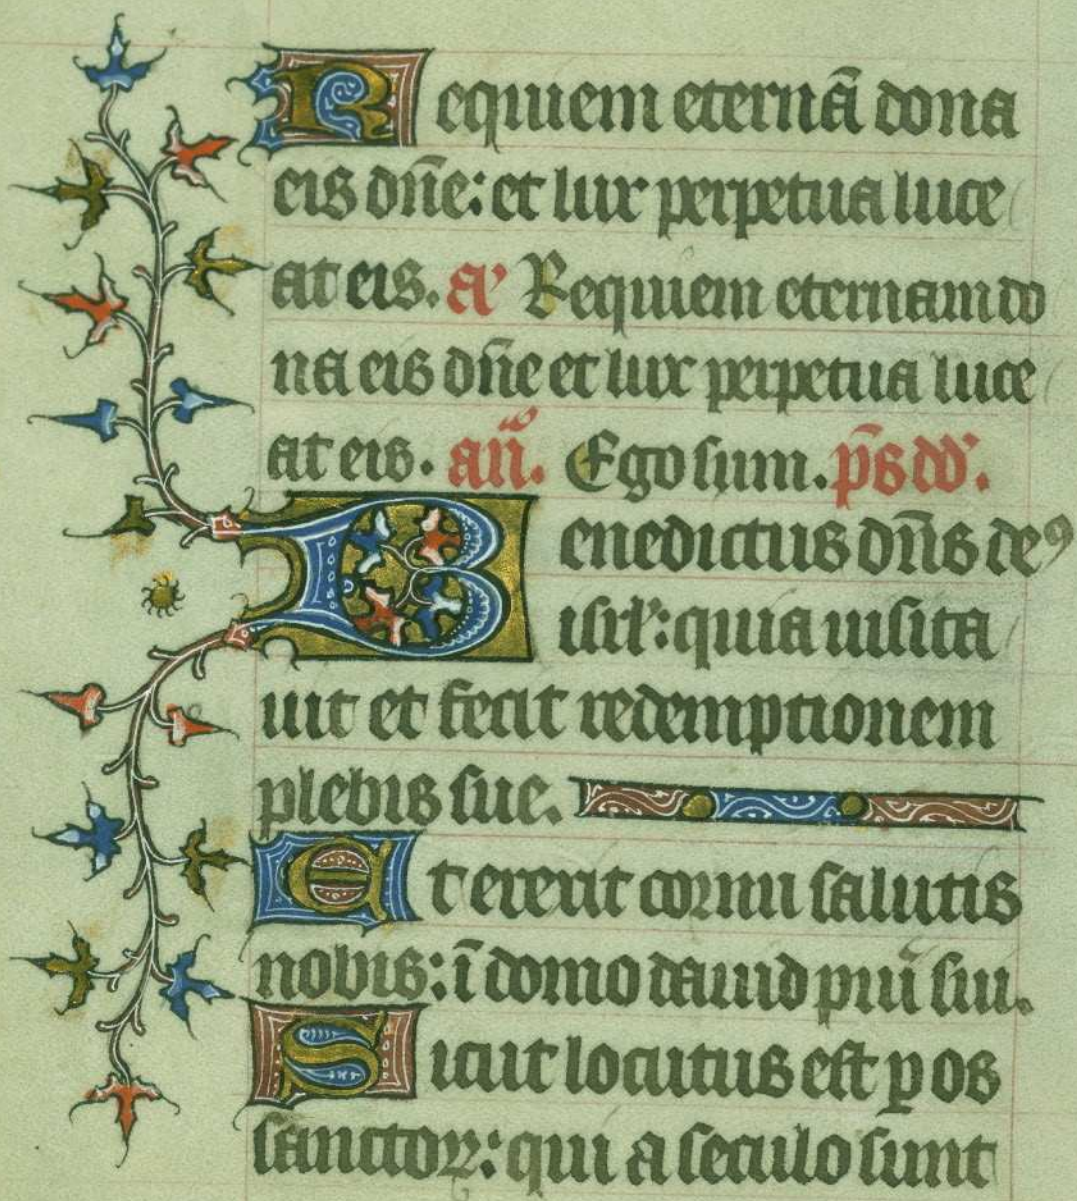 Requiem eternā dona
eis dn̄e: et lux perpetua luce
at eis. a' Requiem eternam do
na eis dn̄e et lux perpetua luce
at eis. an̄. Ego sum. p̄s dd'.
Benedictus dn̄s deꝰ
isrl': quia uisita
uit et fecit redemptionem
plebis sue.
Et erexit cornu salutis
nobis: ī domo dauid piūi sui.
Sicut locutus est p os
sanctoꝝ: qui a seculo sunt